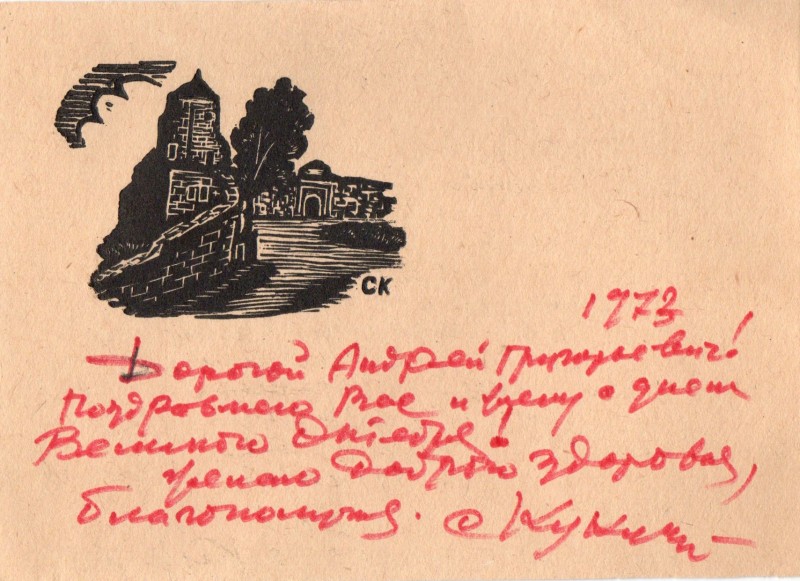 СК
1973
Дорогой Андрей Григорьевич!
Поздравляю Вас и с днем
Великого Октября.
Желаю доброго здоровья,
благополучия.